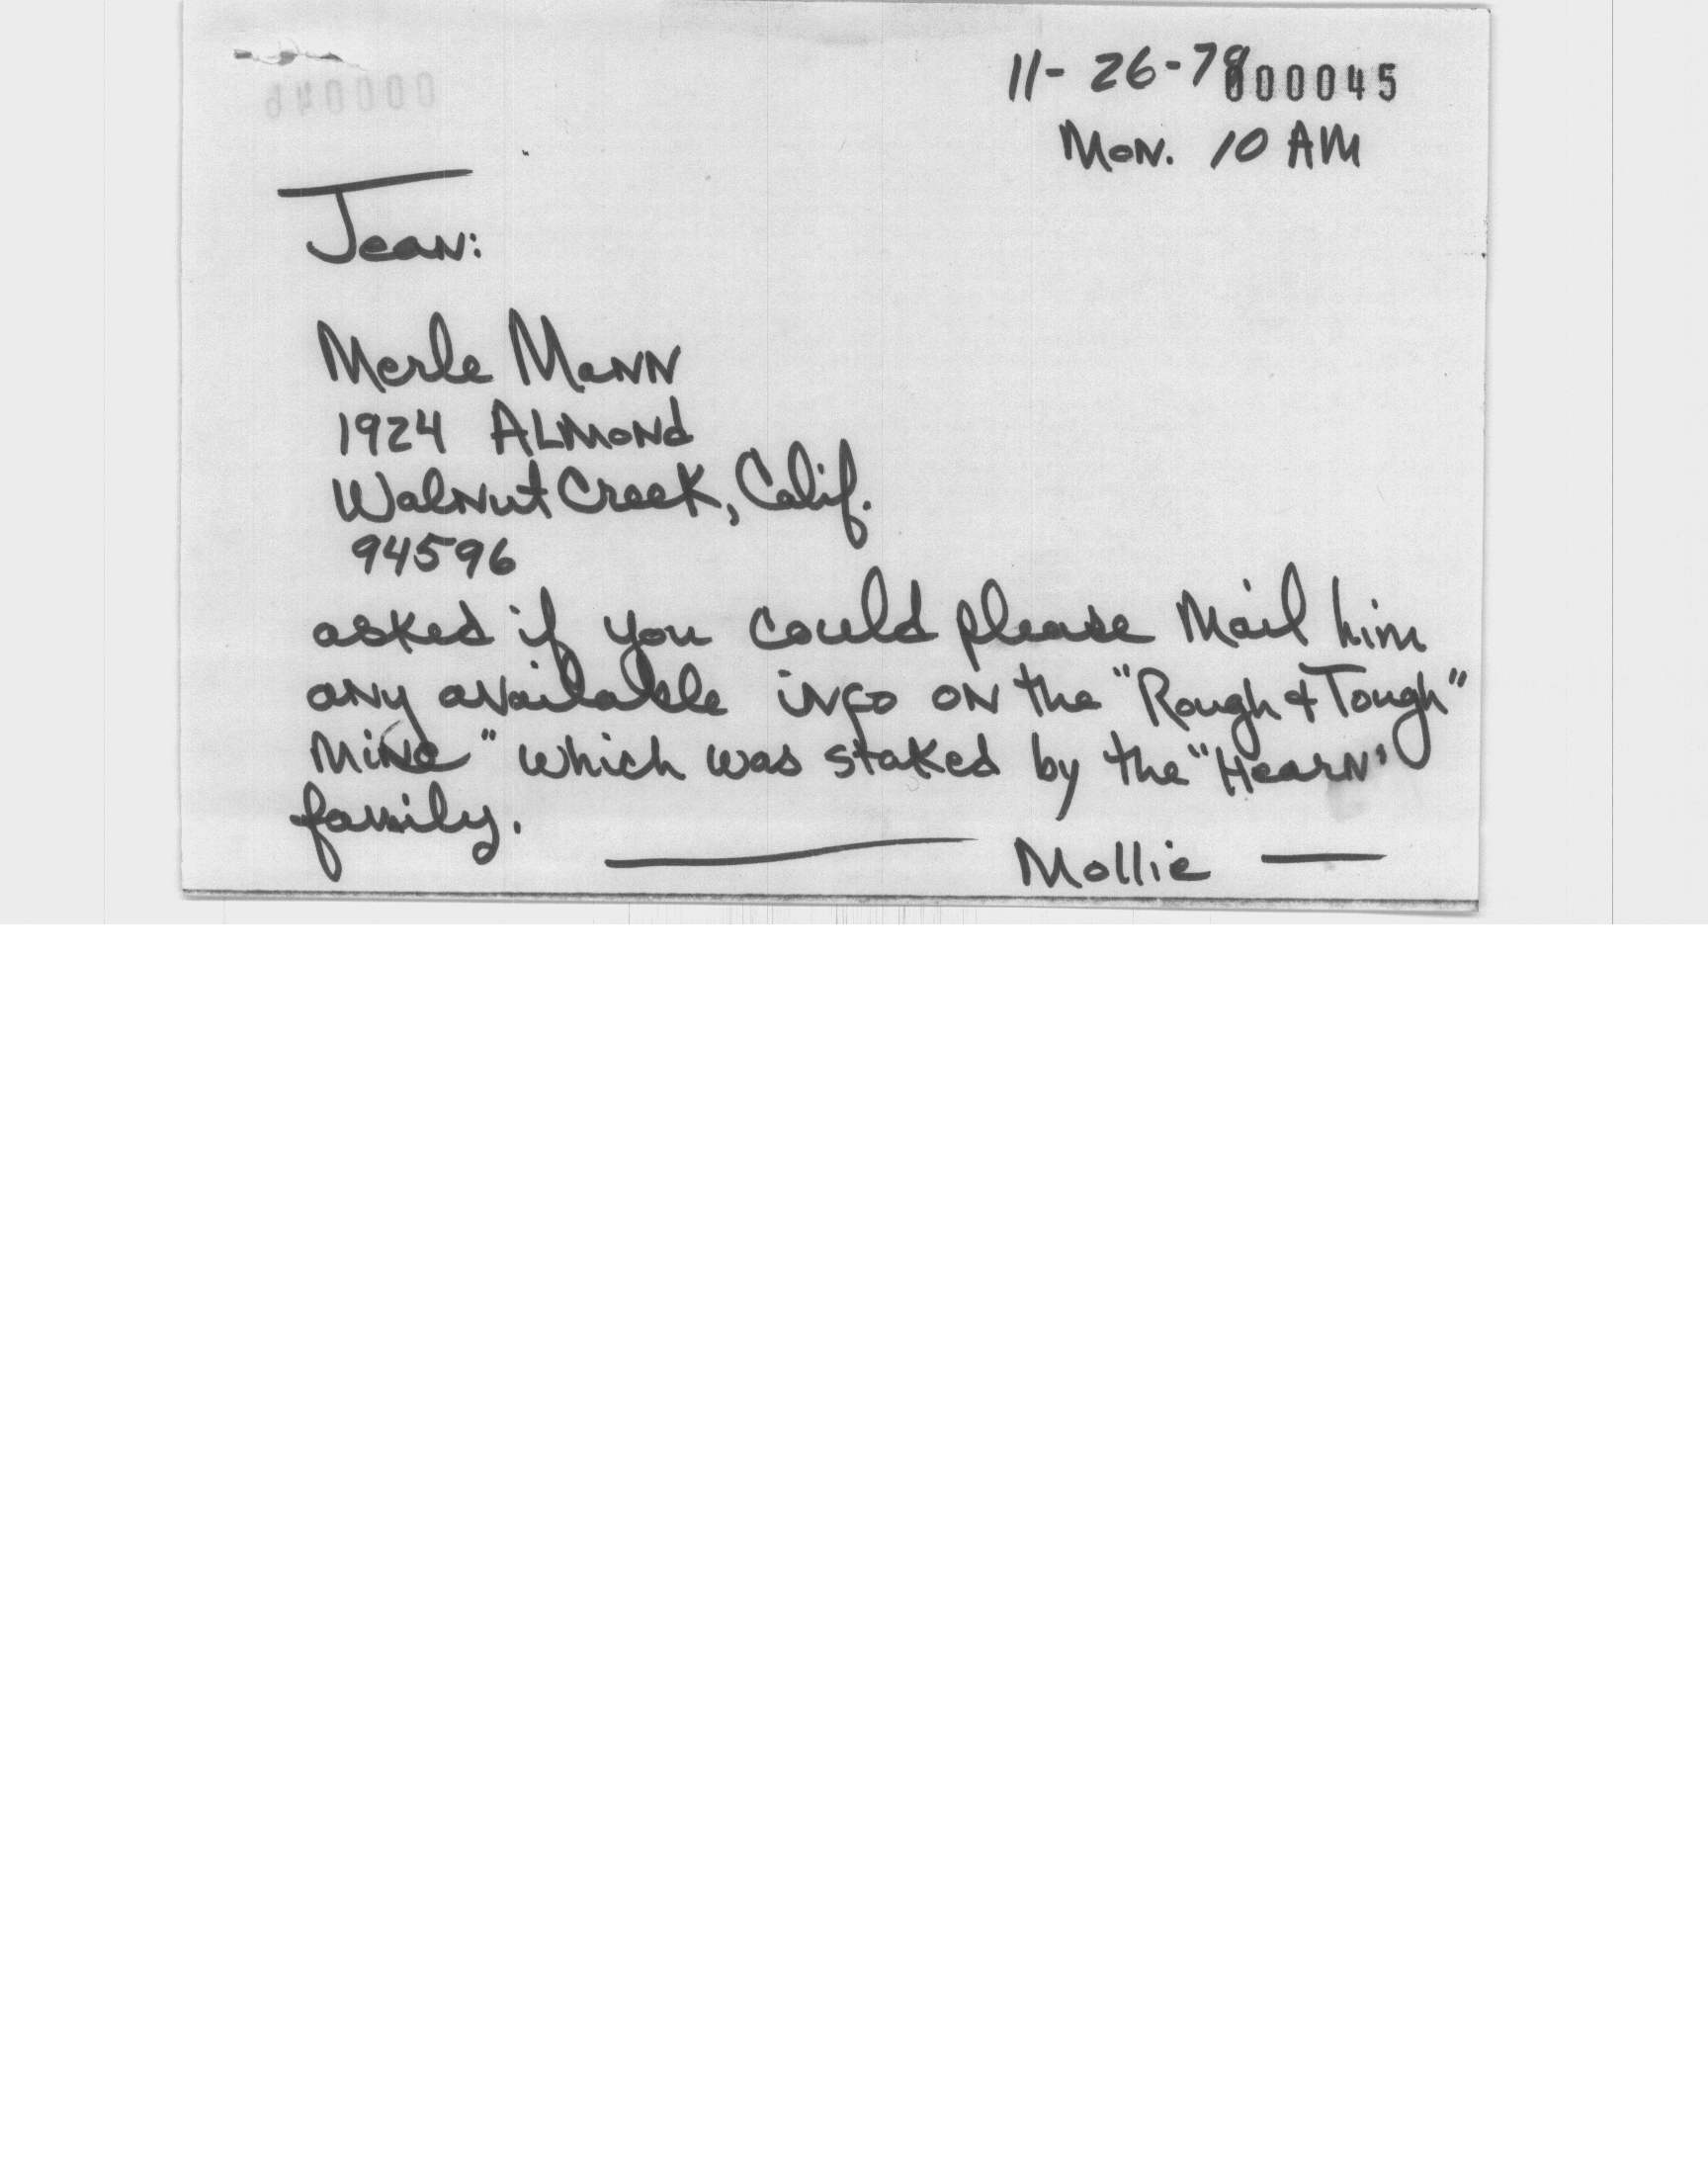 11-26-79 000045
Mon. 10 AM
Jean:
Merle Mann
1924 ALMOND
Walnut Creek, Calif.
94596
asked if you could please Mail him
any available info on the "Rough & Tough"
Mine" which was staked by the "Hearn"
family.
Mollie